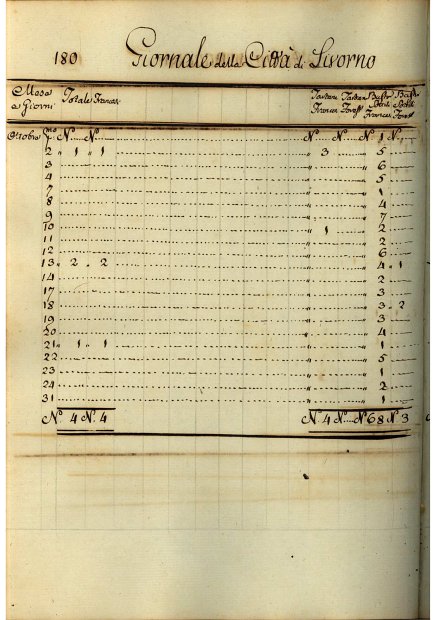 180 Giornale della Città di Livorno
Mese
e Giorni Totale Frances
Frances Forest Frances Forest
Ottobre N. N. N. N. N. 1 N.
2 " 1 " 1 " 3 " 5
3 " 6
4 " 5
7 " 1
8 " 4
9 " 7
10 " 1 " 2
11 " 2
12 " 6
13 " 2 " 2 " 4 " 1
14 " 2
17 " 3
18 " 3 " 2
19 " 3
20 " 4
21 " 1 " 1 " 1
22 " 5
23 " 1
24 " 2
31 " 1
N. 4 N. 4 N. 4 N. N. 68 N. 3